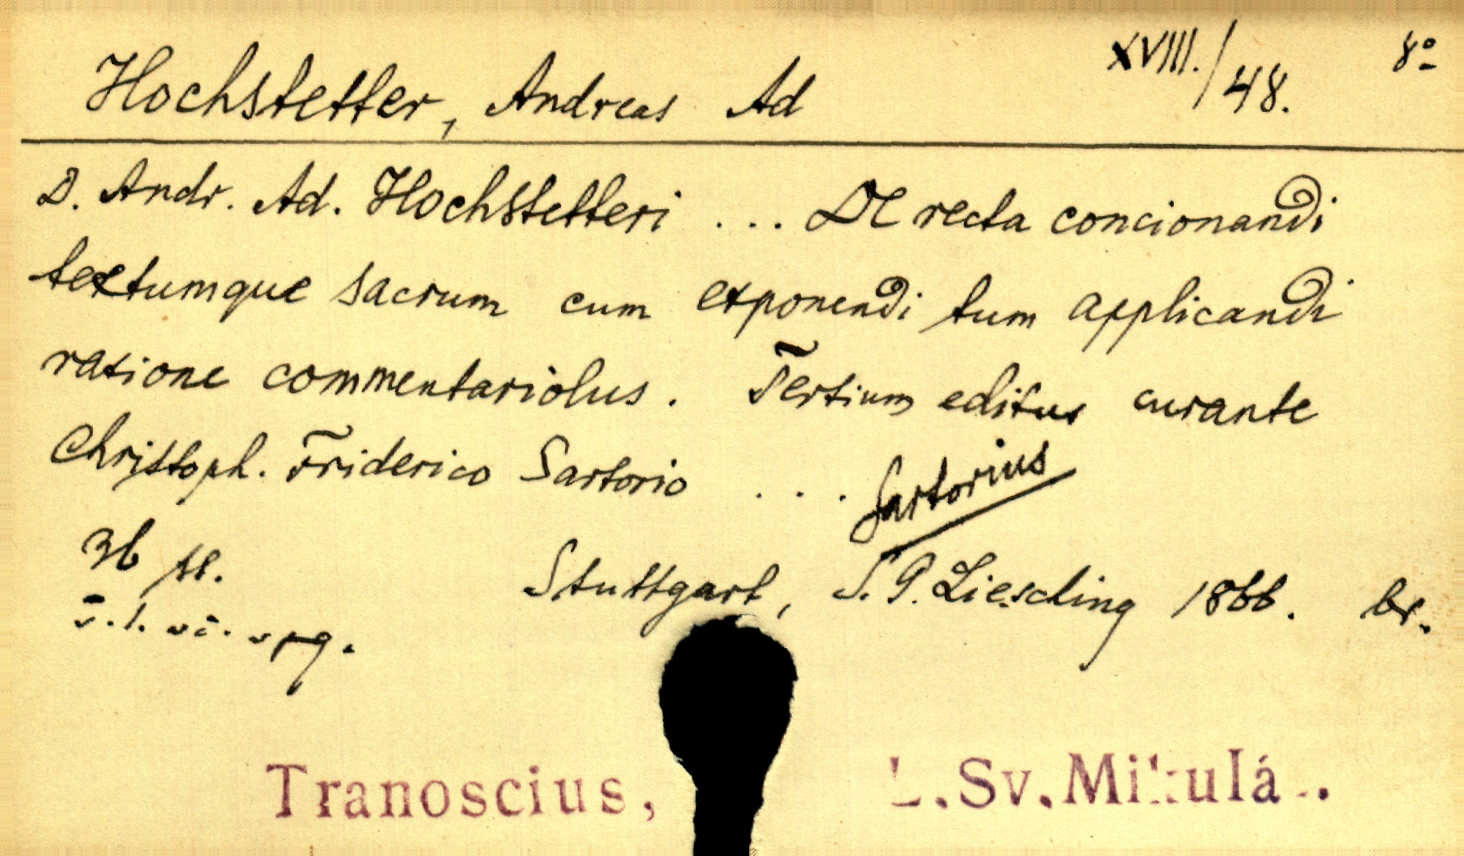 Hochstetter, Andreas Ad XVIII./48. 8°
D. Andr. Ad. Hochstetteri ... De recta concionandi
textumque sacrum cum exponendi tum applicandi
ratione commentariolus. Tertium editus curante
Christoph. Friderico Sartorio ... Sartorius
36
Stuttgart, S. G. Liesching 1866. br.
Tranoscius, L.Sv.Mikulá